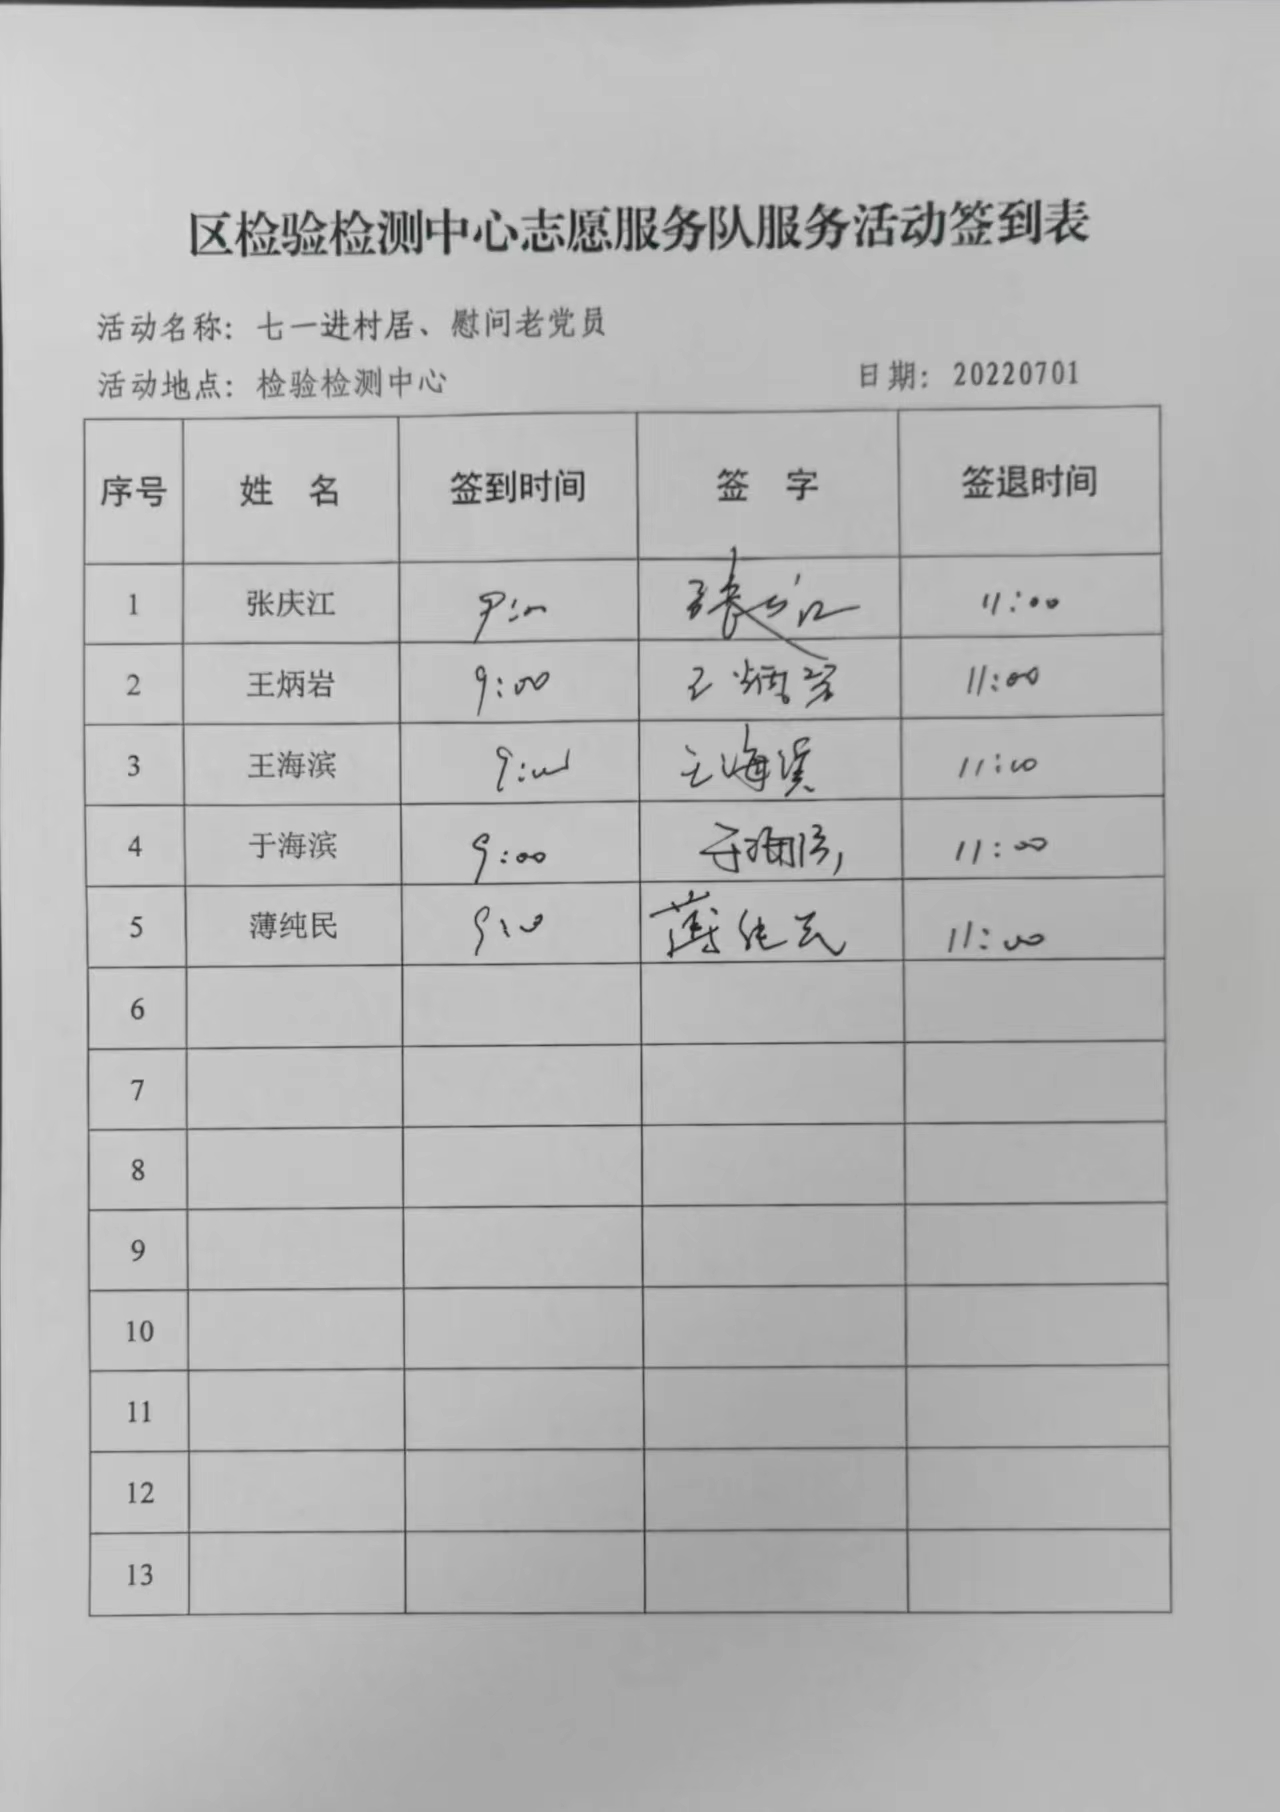 区检验检测中心志愿服务队服务活动签到表
活动名称：七一进村居、慰问老党员
活动地点：检验检测中心 日期：20220701
序号 姓名 签到时间 签字 签退时间
1 张庆江 9:00 张庆江 11:00
2 王炳岩 9:00 王炳岩 11:00
3 王海滨 9:00 王海滨 11:00
4 于海滨 9:00 于海滨 11:00
5 薄纯民 9:00 薄纯民 11:00
6
7
8
9
10
11
12
13